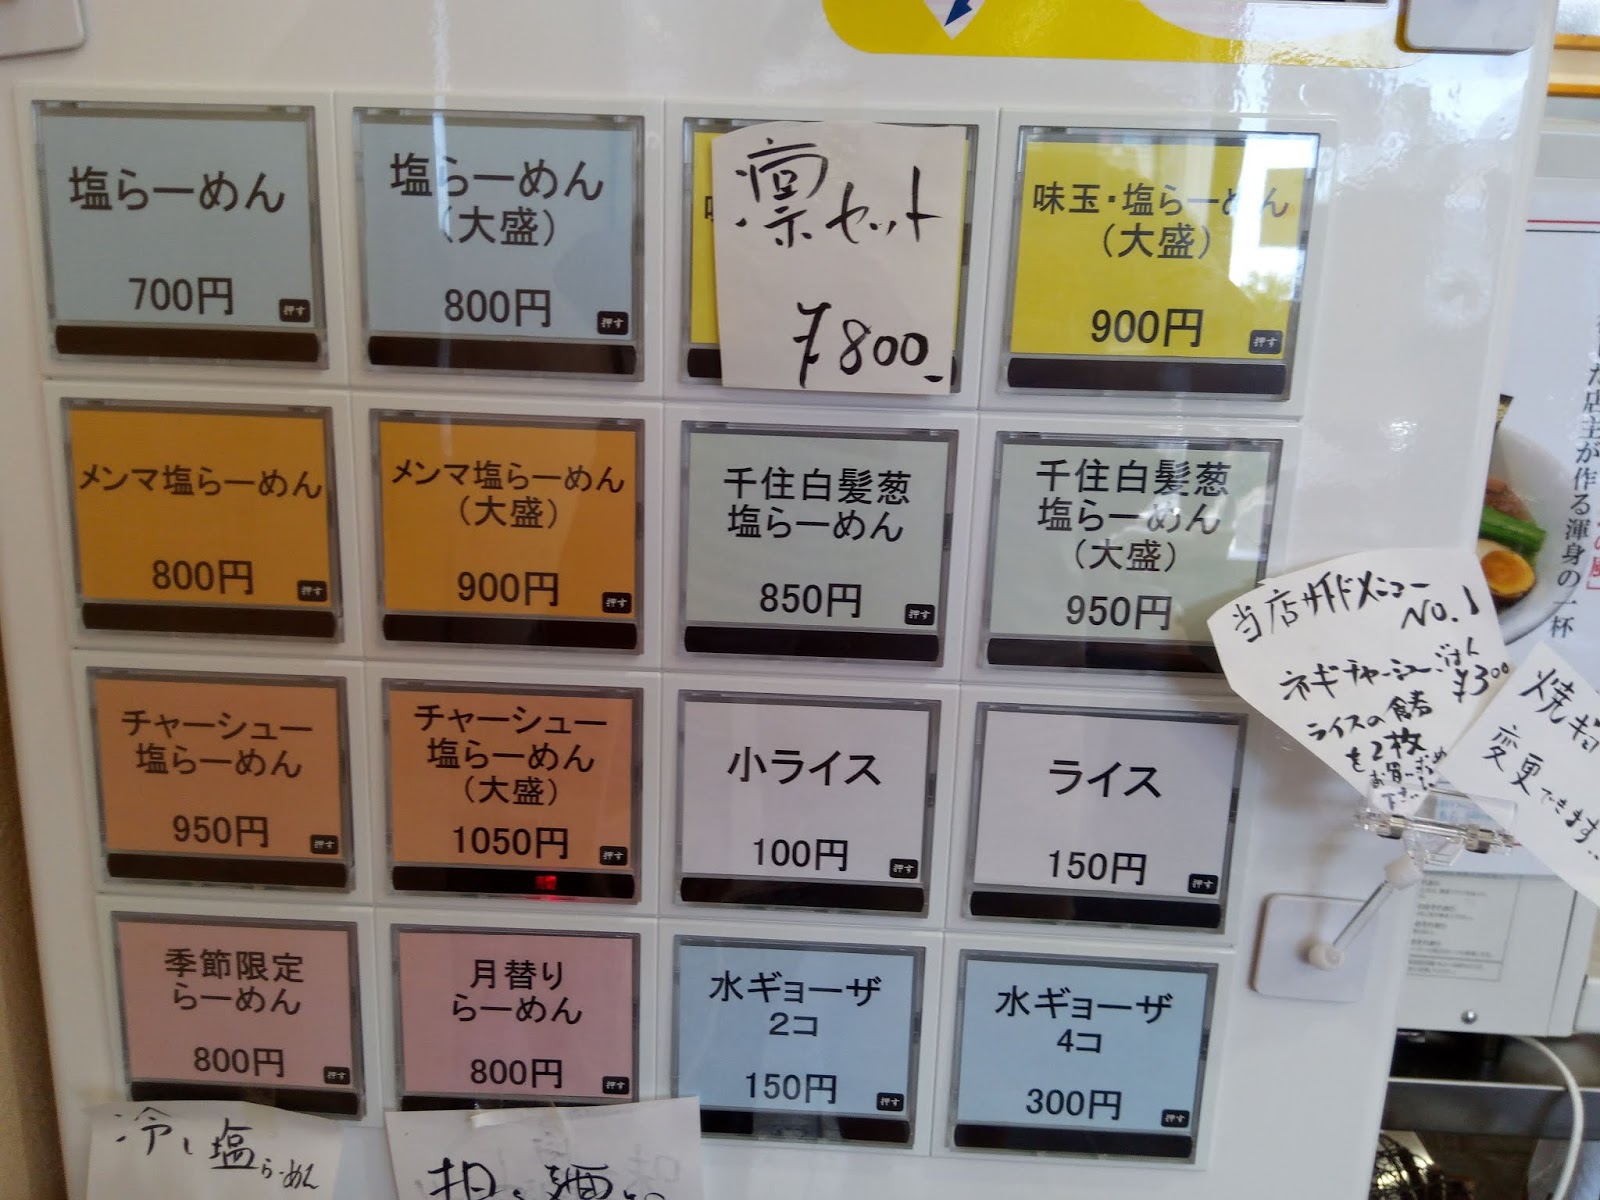 塩らーめん
700円
押す
塩らーめん
（大盛）
800円
押す
凛セット
¥800-
味玉・塩らーめん
（大盛）
900円
押す
メンマ塩らーめん
800円
押す
メンマ塩らーめん
（大盛）
900円
押す
千住白髪葱
塩らーめん
850円
押す
千住白髪葱
塩らーめん
（大盛）
950円
チャーシュー
塩らーめん
950円
押す
チャーシュー
塩らーめん
（大盛）
1050円
押す
小ライス
100円
押す
ライス
150円
押す
季節限定
らーめん
800円
押す
月替り
らーめん
800円
押す
水ギョーザ
2コ
150円
押す
水ギョーザ
4コ
300円
押す
当店サイドメニュー
NO.1
ネギチャーシューごはん
¥300
ライスの食券
を2枚
お買い求め
下さい
焼ギョ
変更できます..
店主が作る渾身の一杯
冷し塩らーめん